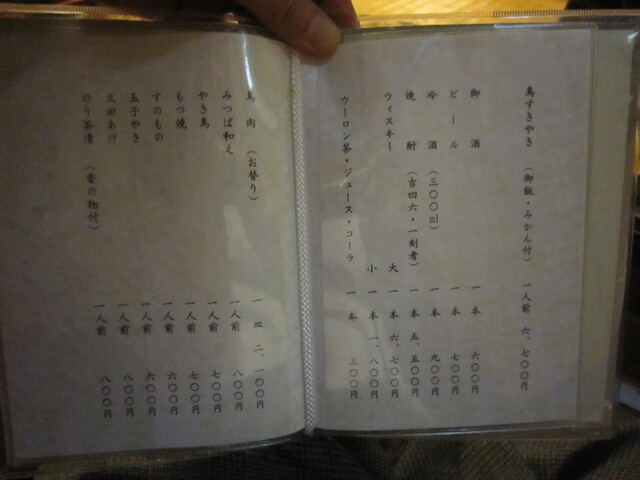 鳥すきやき (御飯・みかん付) 一人前 六、七〇〇円
御酒 一本 六〇〇円
ビール 一本 七〇〇円
冷酒 (三〇〇ml) 一本 九〇〇円
焼酎 (吉四六・一刻者) 一本 五、五〇〇円
ウィスキー 大 一本 六、七〇〇円
小 一本 一、八〇〇円
ウーロン茶・ジュース・コーラ 一本 三〇〇円
鳥肉 (お替り) 一皿 二、一〇〇円
みつば和え 一人前 八〇〇円
やき鳥 一人前 七〇〇円
もつ焼 一人前 七〇〇円
すのもの 一人前 六〇〇円
玉子やき 一人前 六〇〇円
立田あげ 一人前 八〇〇円
のり茶漬 (香の物付) 一人前 八〇〇円